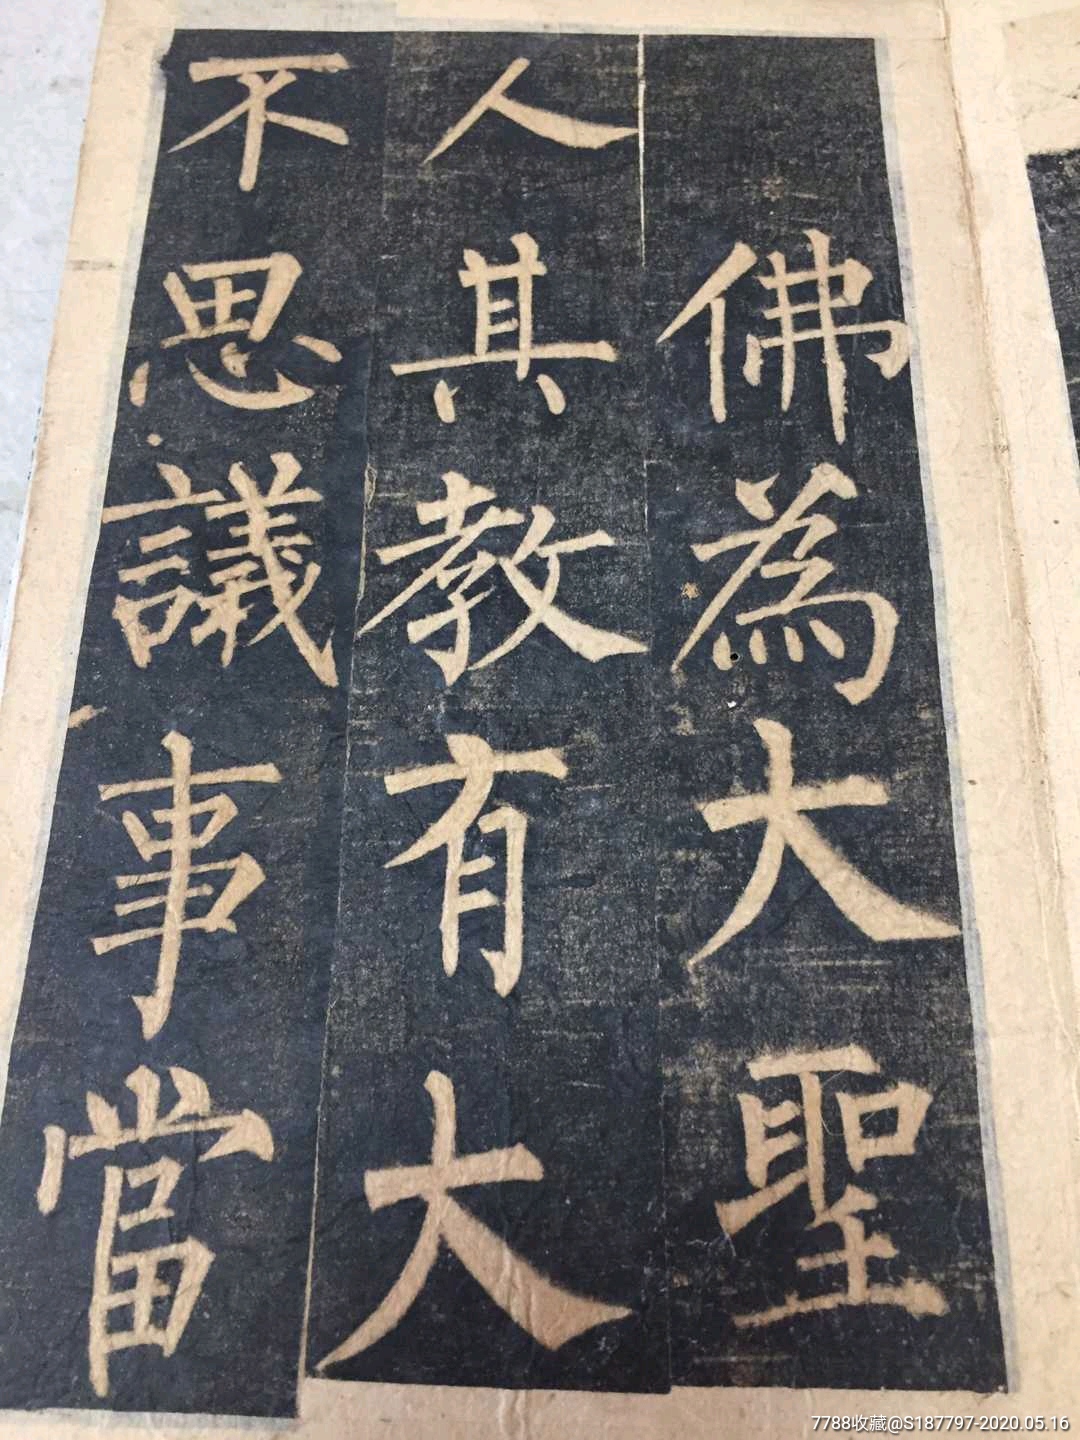 佛為大聖
人其教有大
不思議事當
7788收藏@S187797-2020.05.16